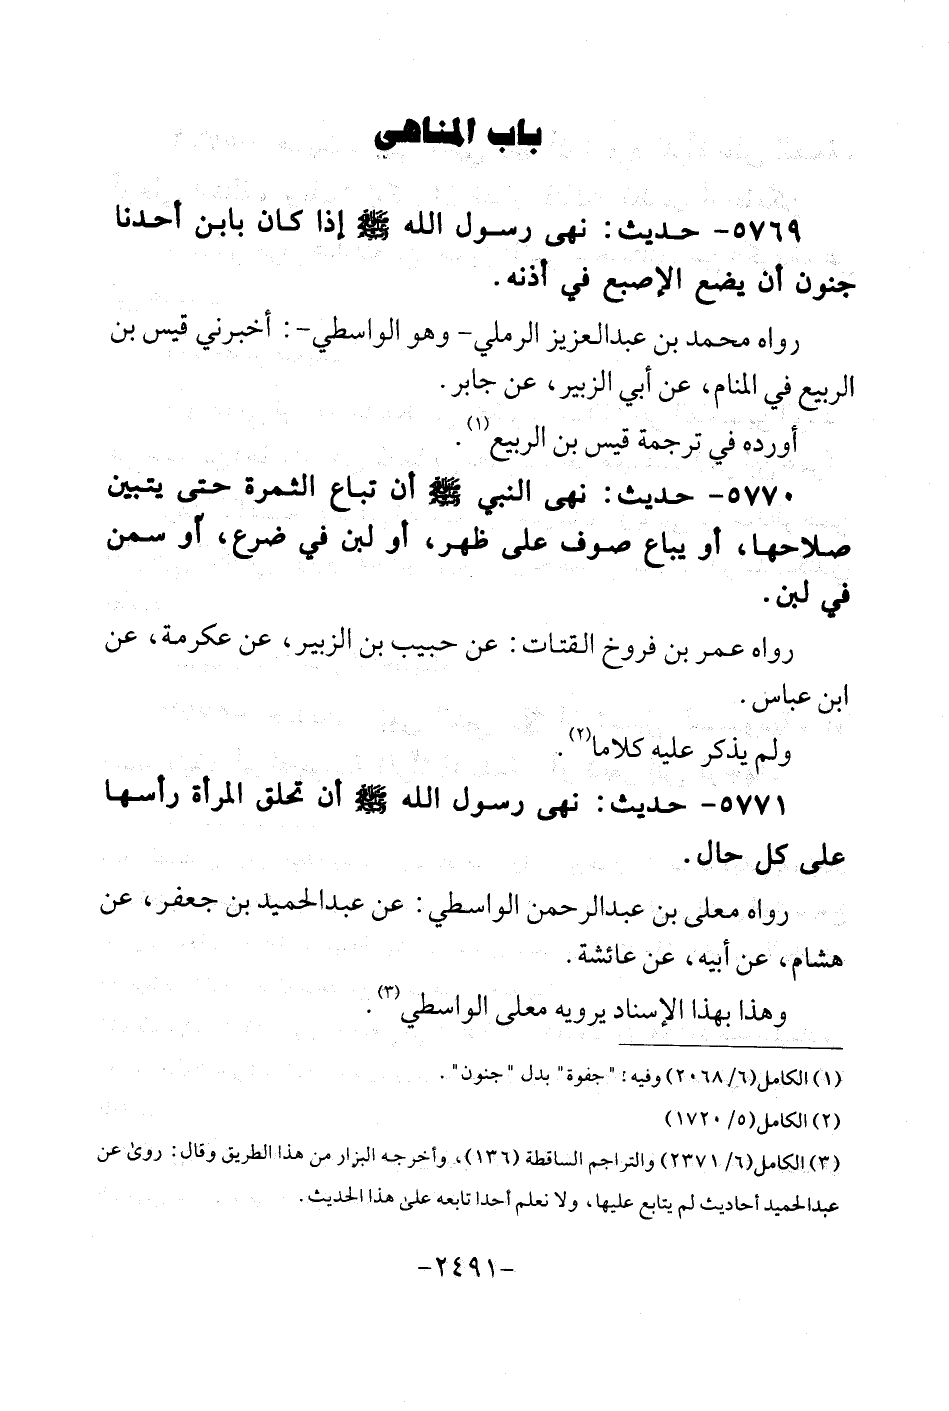 باب المناهي
٥٧٦٩- حديث: نهى رسول الله ﷺ إذا كان بابن أحدنا
جنون أن يضع الإصبع في أذنه.
رواه محمد بن عبدالعزيز الرملي- وهو الواسطي-: أخبرني قيس بن
الربيع في المنام، عن أبي الزبير، عن جابر.
أورده في ترجمة قيس بن الربيع(١).
٥٧٧٠- حديث: نهى النبي ﷺ أن تباع الثمرة حتى يتبين
صلاحها، أو يباع صوف على ظهر، أو لبن في ضرع، أو سمن
في لبن.
رواه عمر بن فروخ القتات: عن حبيب بن الزبير، عن عكرمة، عن
ابن عباس.
ولم يذكر عليه كلاما(٢).
٥٧٧١- حديث: نهى رسول الله ﷺ أن تحلق المرأة رأسها
على كل حال.
رواه معلى بن عبدالرحمن الواسطي: عن عبدالحميد بن جعفر، عن
هشام، عن أبيه، عن عائشة.
وهذا بهذا الإسناد يرويه معلى الواسطي(٣).
(١) الكامل(٦/ ٢٠٦٨) وفيه: "جفوة" بدل "جنون".
(٢) الكامل(٥/ ١٧٢٠)
(٣) الكامل(٦/ ٢٣٧١) والتراجم الساقطة (١٣٦)، وأخرجه البزار من هذا الطريق وقال: روىٰ عن
عبدالحميد أحاديث لم يتابع عليها، ولا نعلم أحدا تابعه علىٰ هذا الحديث.
-٢٤٩١-